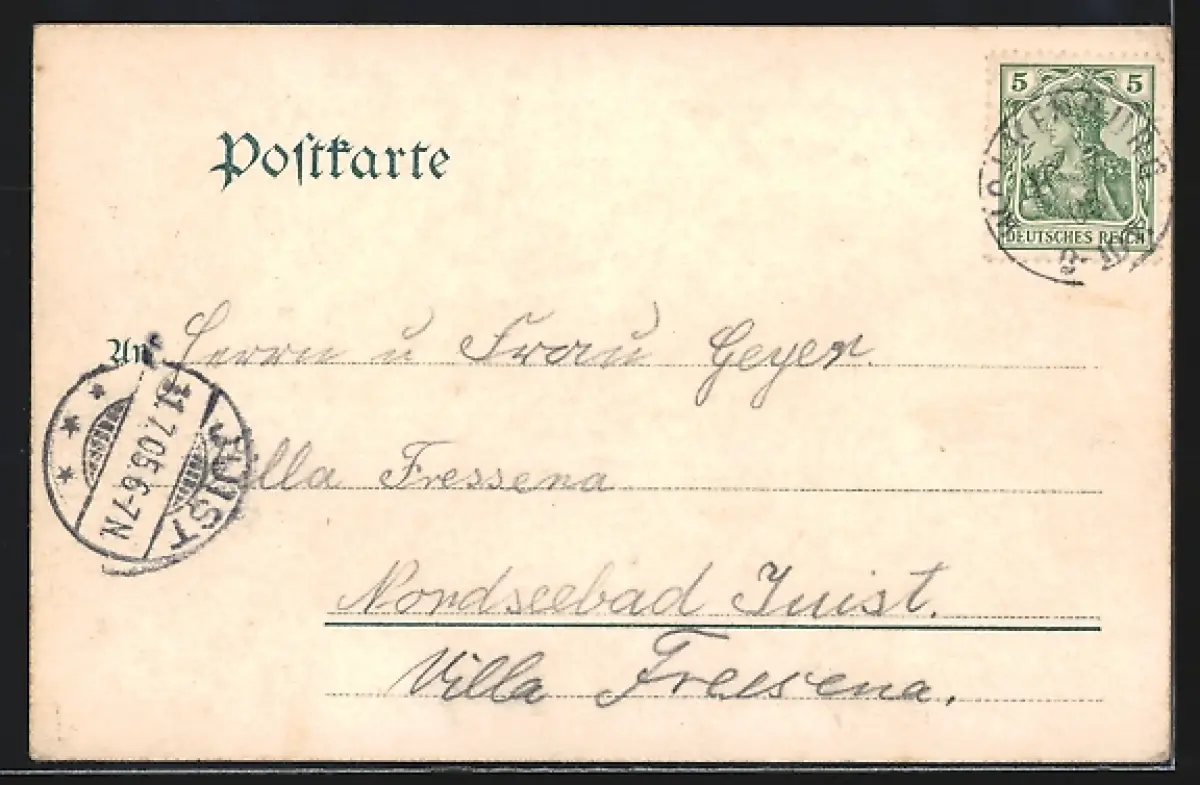 5 5
DEUTSCHES REICH
Postkarte
An Herrn u Frau Geyer.
JUIST
31.7.05.6-7N.
Villa Fressena
Nordseebad Juist.
Villa Freesena.